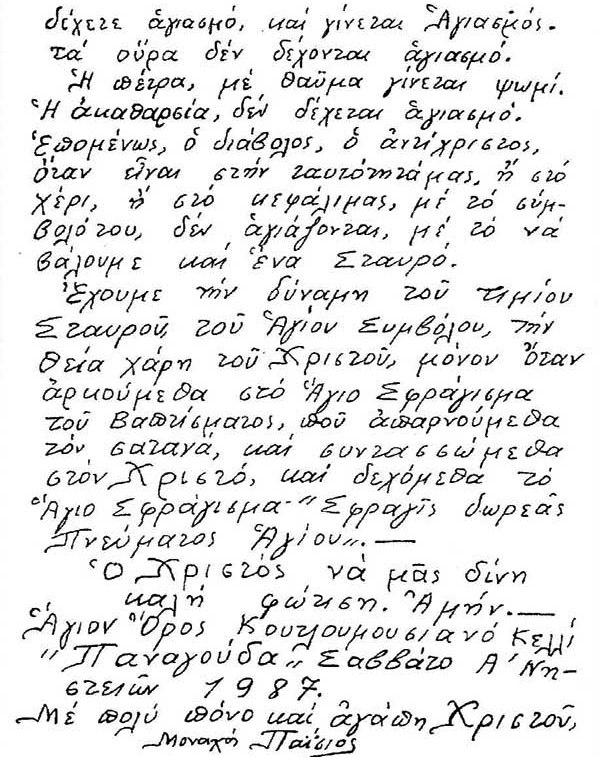 δέχετε ἁγιασμό, καί γίνεται Ἁγιασμός.
τά οὖρα δέν δέχονται ἁγιασμό.
Ἡ πέτρα, μέ θαῦμα γίνεται ψωμί.
Ἡ ἀκαθαρσία, δέν δέχεται ἁγιασμό.
Ἑπομένως, ὁ διάβολος, ὁ ἀντίχριστος,
ὅταν εἶναι στήν ταυτότητάμας, ἤ στό
χέρι, ἤ στό κεφάλιμας, μέ τό σύμ-
βολότου, δέν ἁγιάζονται, μέ τό νά
βάλουμε καί ἕνα Σταυρό.
Ἔχουμε τήν δύναμη τοῦ τιμίου
Σταυροῦ, τοῦ Ἁγίου Συμβόλου, τήν
θεία χάρη τοῦ Χριστοῦ, μόνον ὅταν
ἀρκούμεθα στό Ἅγιο Σφράγισμα
τοῦ Βαπτίσματος, πού ἀπαρνούμεθα
τόν σατανά, καί συντασσώμεθα
στόν Χριστό, καί δεχόμεθα τό
Ἅγιο Σφράγισμα-"Σφραγῖς δωρεᾶς
Πνεύματος Ἁγίου".—
Ὁ Χριστός νά μᾶς δίνη
καλή φώτιση. Ἀμήν.—
Ἅγιον Ὄρος Κουτλουμουσιανό Κελλί
"Παναγούδα" Σαββάτο Α΄ Νη-
στειῶν 1987.
Μέ πολύ πόνο καί ἀγάπη Χριστοῦ,
Μοναχός Παΐσιος